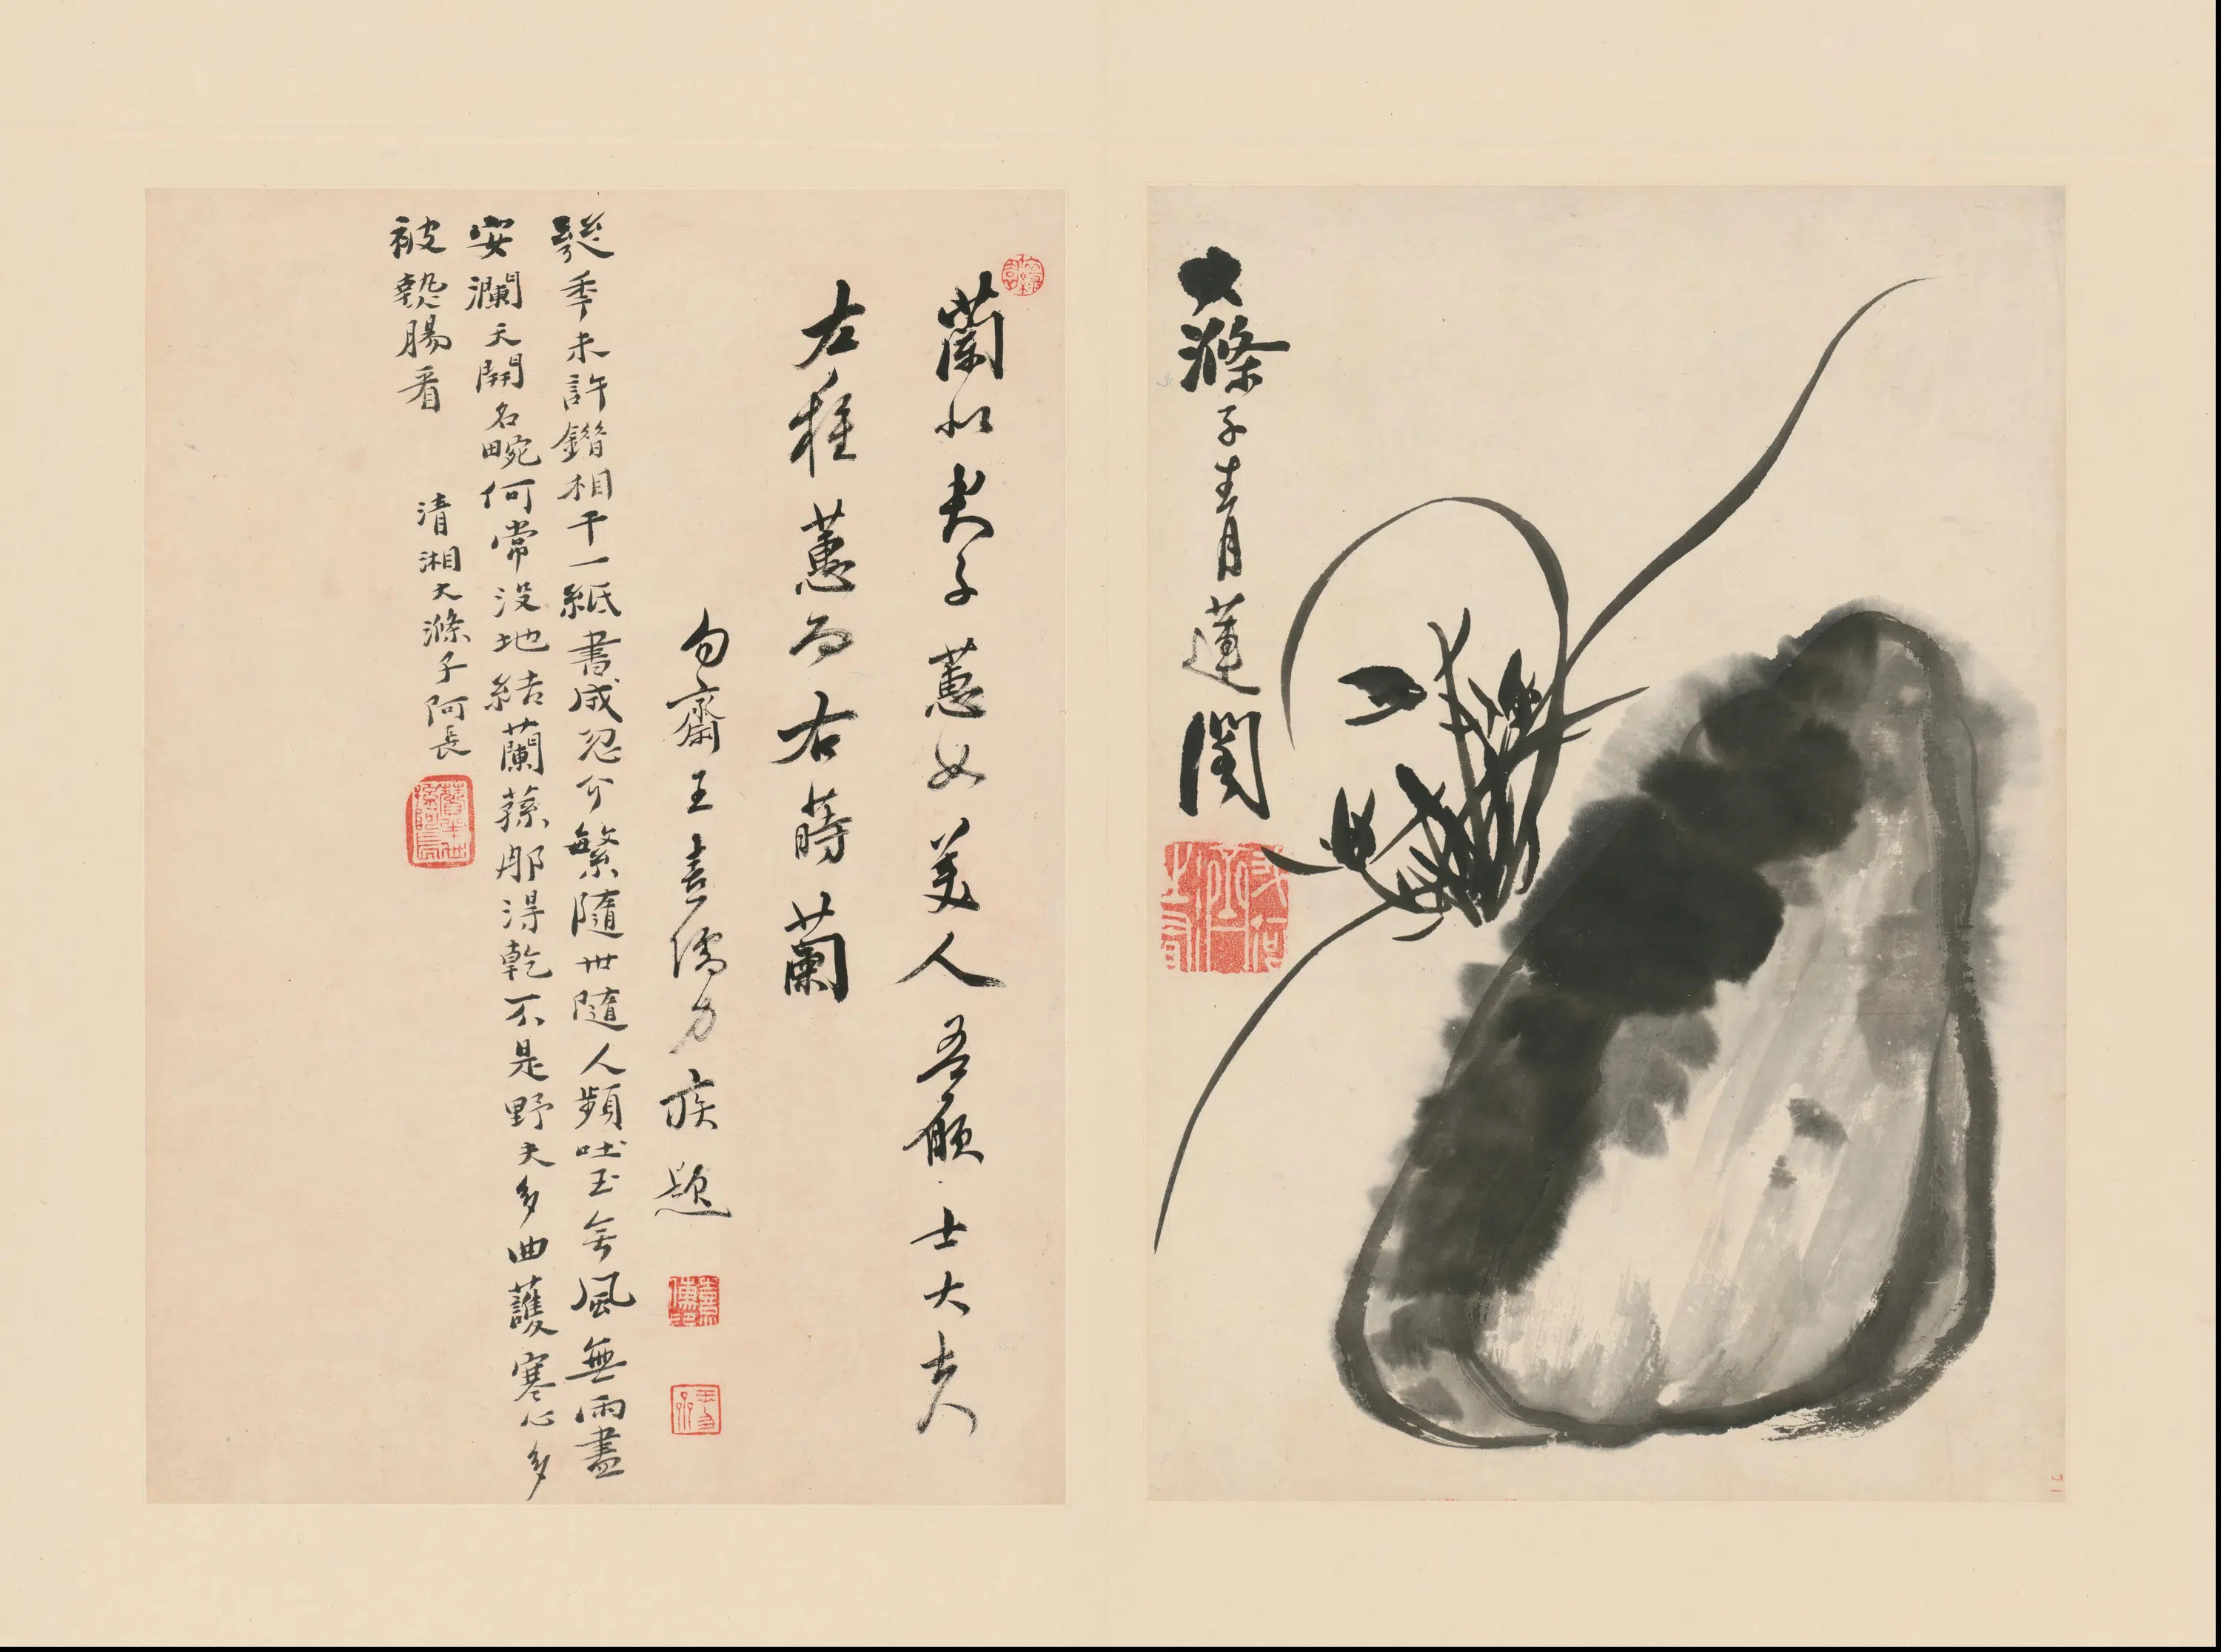 大滌子青蓮閣
蘭似夫子蕙如美人吾願士大夫
左種蕙而右蒔蘭
勿齋王熹儒力疾題
季未許錯相干一紙書成忍介繁隨世隨人頻吐玉無風無雨盡
安瀾天開名畹何常沒地結蘭蓀那得乾不是野夫多曲護寒心多
被熱腸看
清湘大滌子阿長